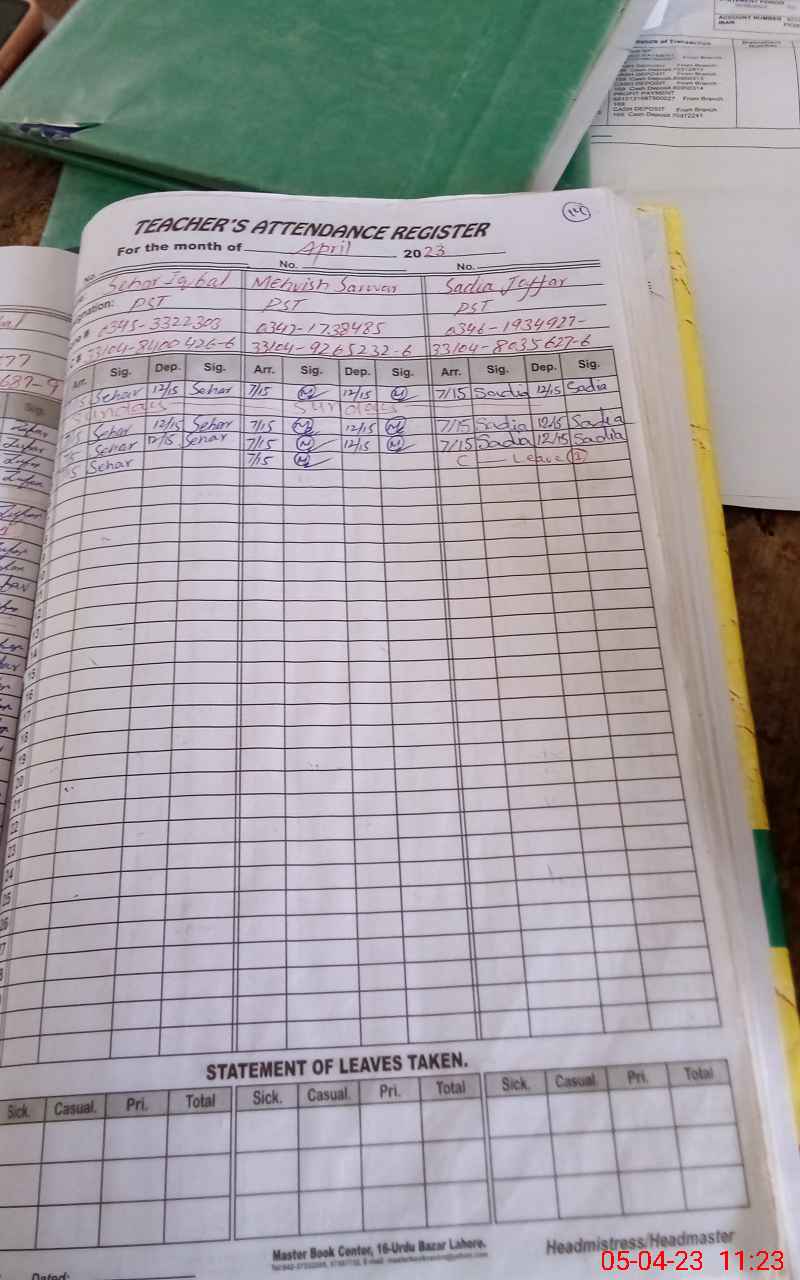 ACCOUNT NUMBER
Nature of Transaction
CASH DEPOSIT From Branch
PROFIT PAYMENT
CASH DEPOSIT From Branch
14
TEACHER'S ATTENDANCE REGISTER
For the month of April 2023
No. No. No.
Sehar Iqbal Mehvish Sarwar Sadia Jaffar
PST PST PST
0345-3322303 0347-1738485 0346-1934927-
33104-8400426-6 33104-9265232-6 33104-8035627-6
Arr. Sig. Dep. Sig. Arr. Sig. Dep. Sig. Arr. Sig. Dep. Sig.
Sehar 12/15 Sehar 7/15 M 12/15 M 7/15 Sadia 12/15 Sadia
Sunday Sunday
Sehar 12/15 Sehar 7/15 M 12/15 M 7/15 Sadia 12/15 Sadia
Sehar 12/15 Sehar 7/15 M 12/15 M 7/15 Sadia 12/15 Sadia
Sehar 7/15 M C Leave 1
13
14
15
16
17
18
19
20
21
22
23
24
25
STATEMENT OF LEAVES TAKEN.
Sick. Casual. Pri. Total Sick. Casual. Pri. Total Sick. Casual. Pri. Total
Master Book Center, 16-Urdu Bazar Lahore.
Headmistress/Headmaster
Dated:
05-04-23 11:23